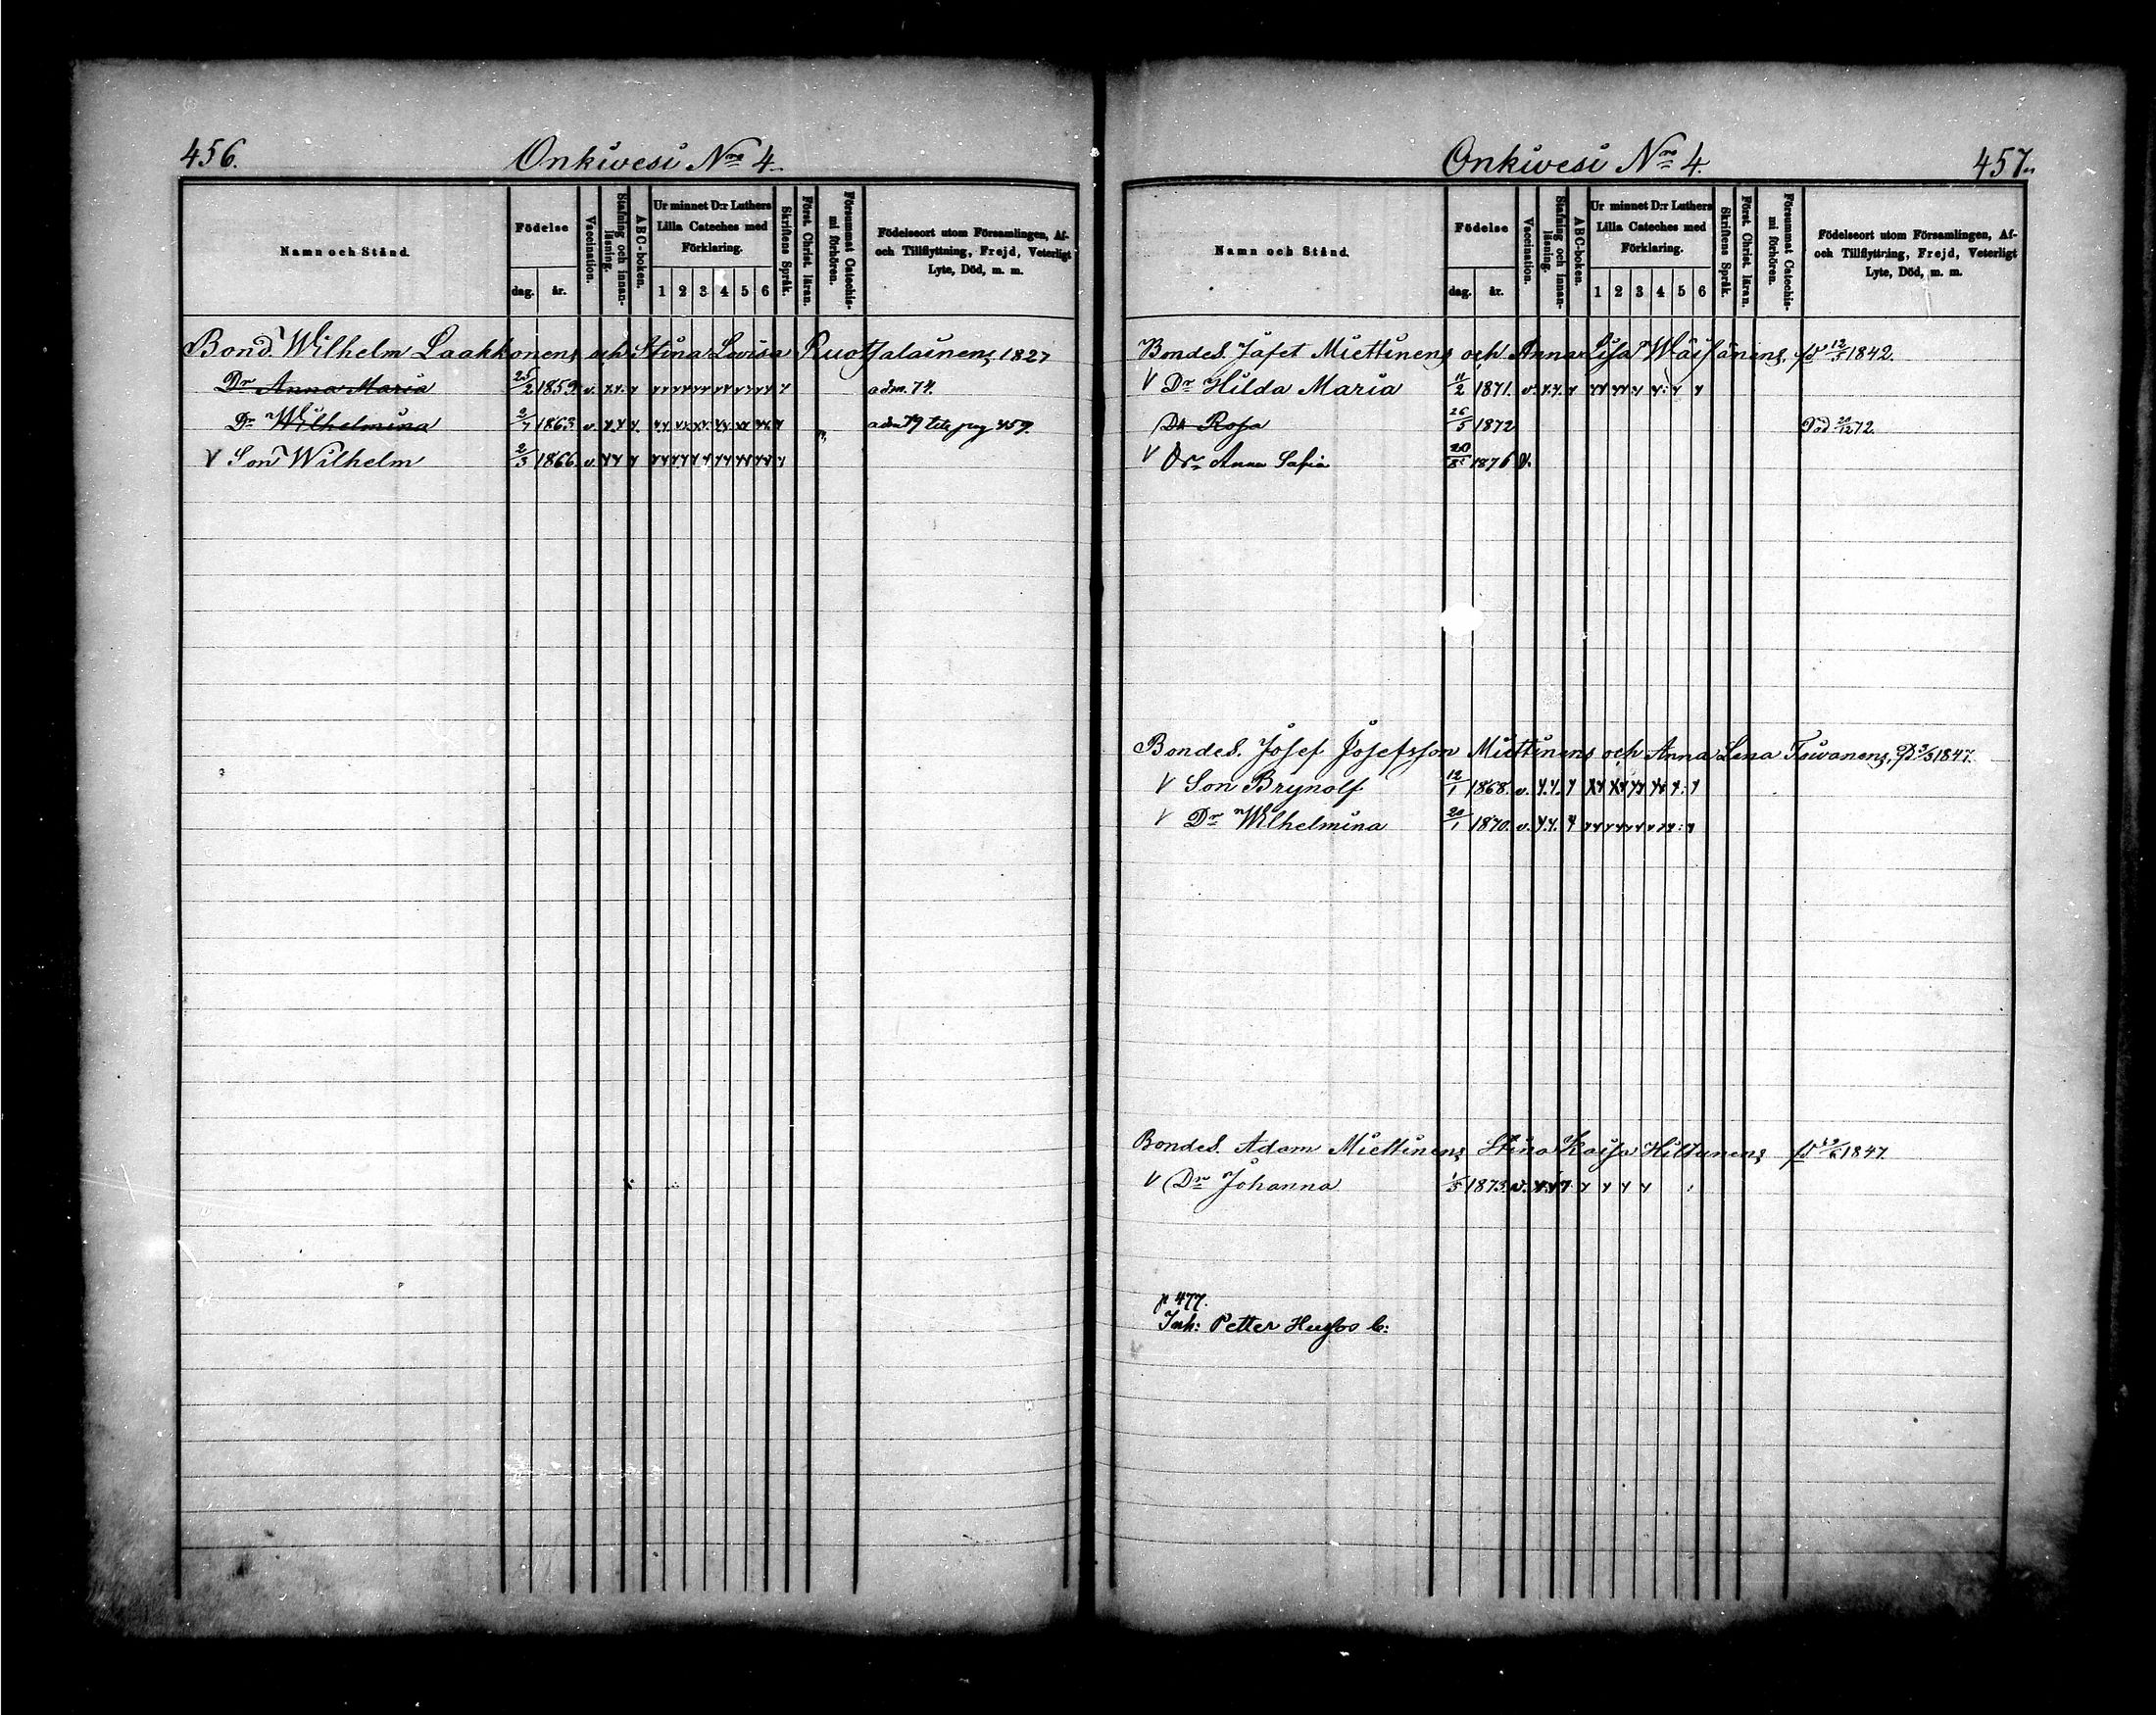 456.
Onkivesi Nro 4.
Namn och Stånd.
Födelse
dag.
år.
Vaccination.
Stafning och innanläsning.
ABC-boken.
Ur minnet D:r Luthers
Lilla Cateches med
Förklaring.
1 2 3 4 5 6
Skriftens Språk.
Först. Christ. läran.
Försummat Catechismi förhören.
Födelseort utom Församlingen, Af-
och Tillflyttning, Frejd, Veterligt
Lyte, Död, m. m.
Bond. Wilhelm Laakkonens och Stina Lovisa Ruotsalainens 1827
Dr Anna Maria 25/2 1859. v. adm. 74.
Dr Wilhelmina 2/7 1863 v. adm 79 pag 459.
V Son Wilhelm 2/3 1866 v.
Onkivesi Nro 4.
457.
Namn och Stånd.
Födelse
dag.
år.
Vaccination.
Stafning och innanläsning.
ABC-boken.
Ur minnet D:r Luthers
Lilla Cateches med
Förklaring.
1 2 3 4 5 6
Skriftens Språk.
Först. Christ. läran.
Försummat Catechismi förhören.
Födelseort utom Församlingen, Af-
och Tillflyttning, Frejd, Veterligt
Lyte, Död, m. m.
Bondes. Jafet Miettinens och Anna Lisa Wäisänens, fd 12/5 1842.
V Dr Hilda Maria 11/2 1871. v.
Dr Rosa 26/5 1872 Död 20/12 72.
V Dr Anna Sofia 20/8 1876 v.
Bondes. Josef Josefsson Miettinens och Anna Lena Tiivanens, 1847.
V Son Brynolf 12/1 1868. v.
V Dr Wilhelmina 20/1 1870. v.
Bondes. Adam Miettinens Stina Kaisa Hiltunens fd 1847.
V Dr Johanna 1/5 1873 v.
p 477.
Inh: Petter b: